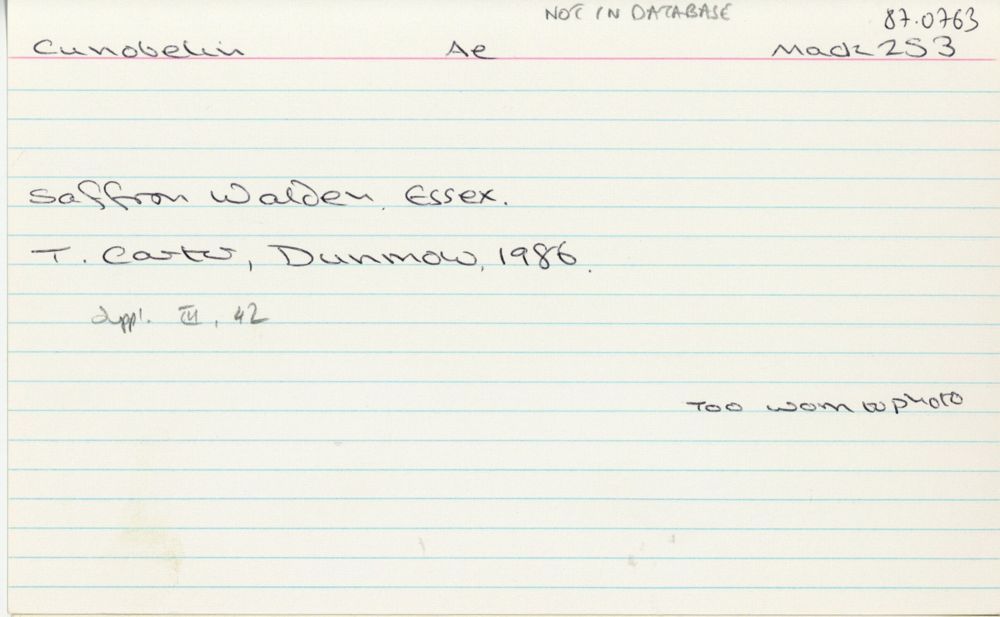 NOT IN DATABASE
87.0763
Cunobelin Ae Mack 253
Saffron Walden, Essex.
T. Carter, Dunmow, 1986.
Suppl. III, 42
Too worn to photo